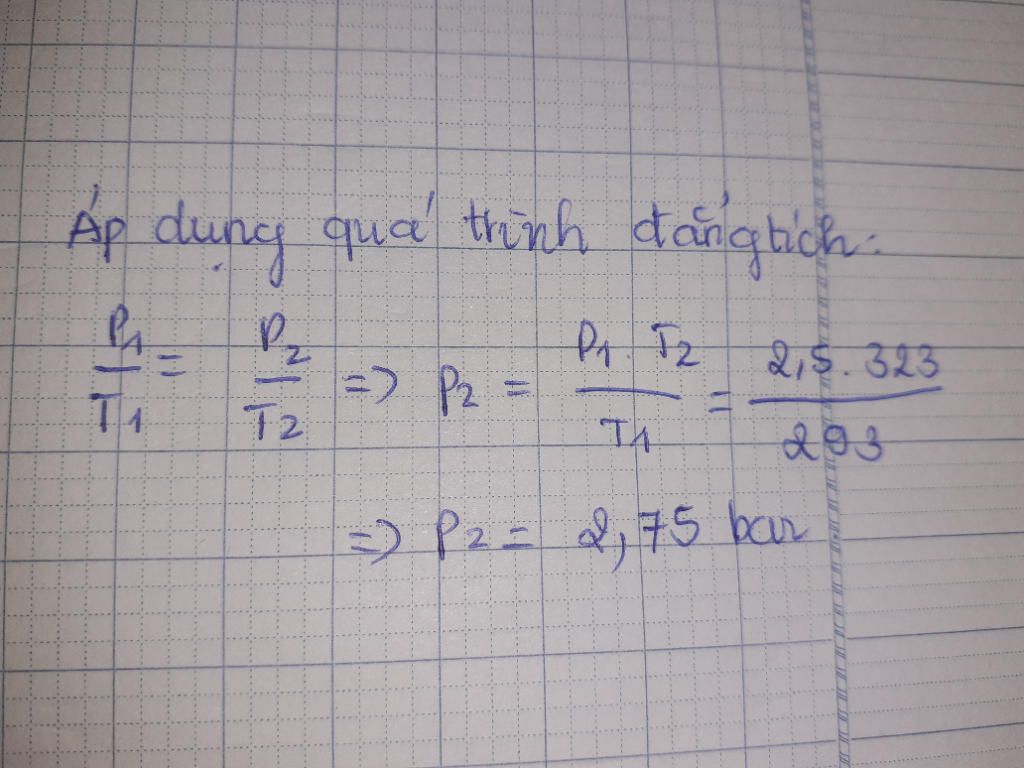 Áp dụng quá trình đẳng tích:
P1/T1 = P2/T2 => P2 = P1. T2/T1 = 2,5. 323/293
=> P2 = 2,75 bar